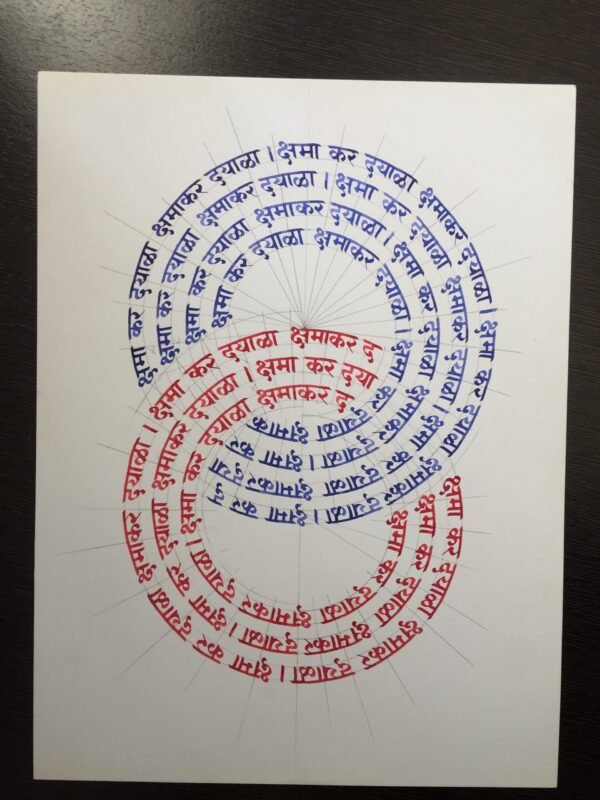 क्षमा कर दयाळा क्षमाकर दयाळा । क्षमा कर दयाळा क्षमाकर दयाळा । क्षमा कर दयाळा क्षमाकर दयाळा । क्षमा कर द
क्षमा कर दयाळा क्षमाकर दयाळा । क्षमा कर दयाळा क्षमाकर दयाळा । क्षमा कर दयाळा क्षमाकर दया
क्षमा कर दयाळा क्षमाकर दयाळा । क्षमा कर दयाळा क्षमाकर दयाळा । क्षमा कर
क्षमा कर दयाळा क्षमाकर दयाळा । क्षमा कर दयाळा क्षमाक
क्षमा कर दयाळा क्षमाकर दयाळा । क्षमा कर दयाळा क्षमाकर दयाळा । क्षमा कर दयाळा क्षमाकर द
क्षमा कर दयाळा क्षमाकर दयाळा । क्षमा कर दयाळा क्षमाकर दयाळा । क्षमा कर दया
क्षमा कर दयाळा क्षमाकर दयाळा । क्षमा कर दयाळा क्षमाकर द